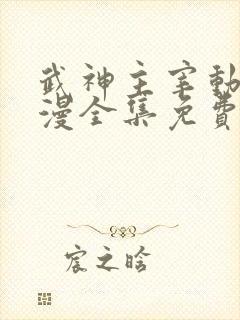 武神主宰動
漫全集免費
宸之晗